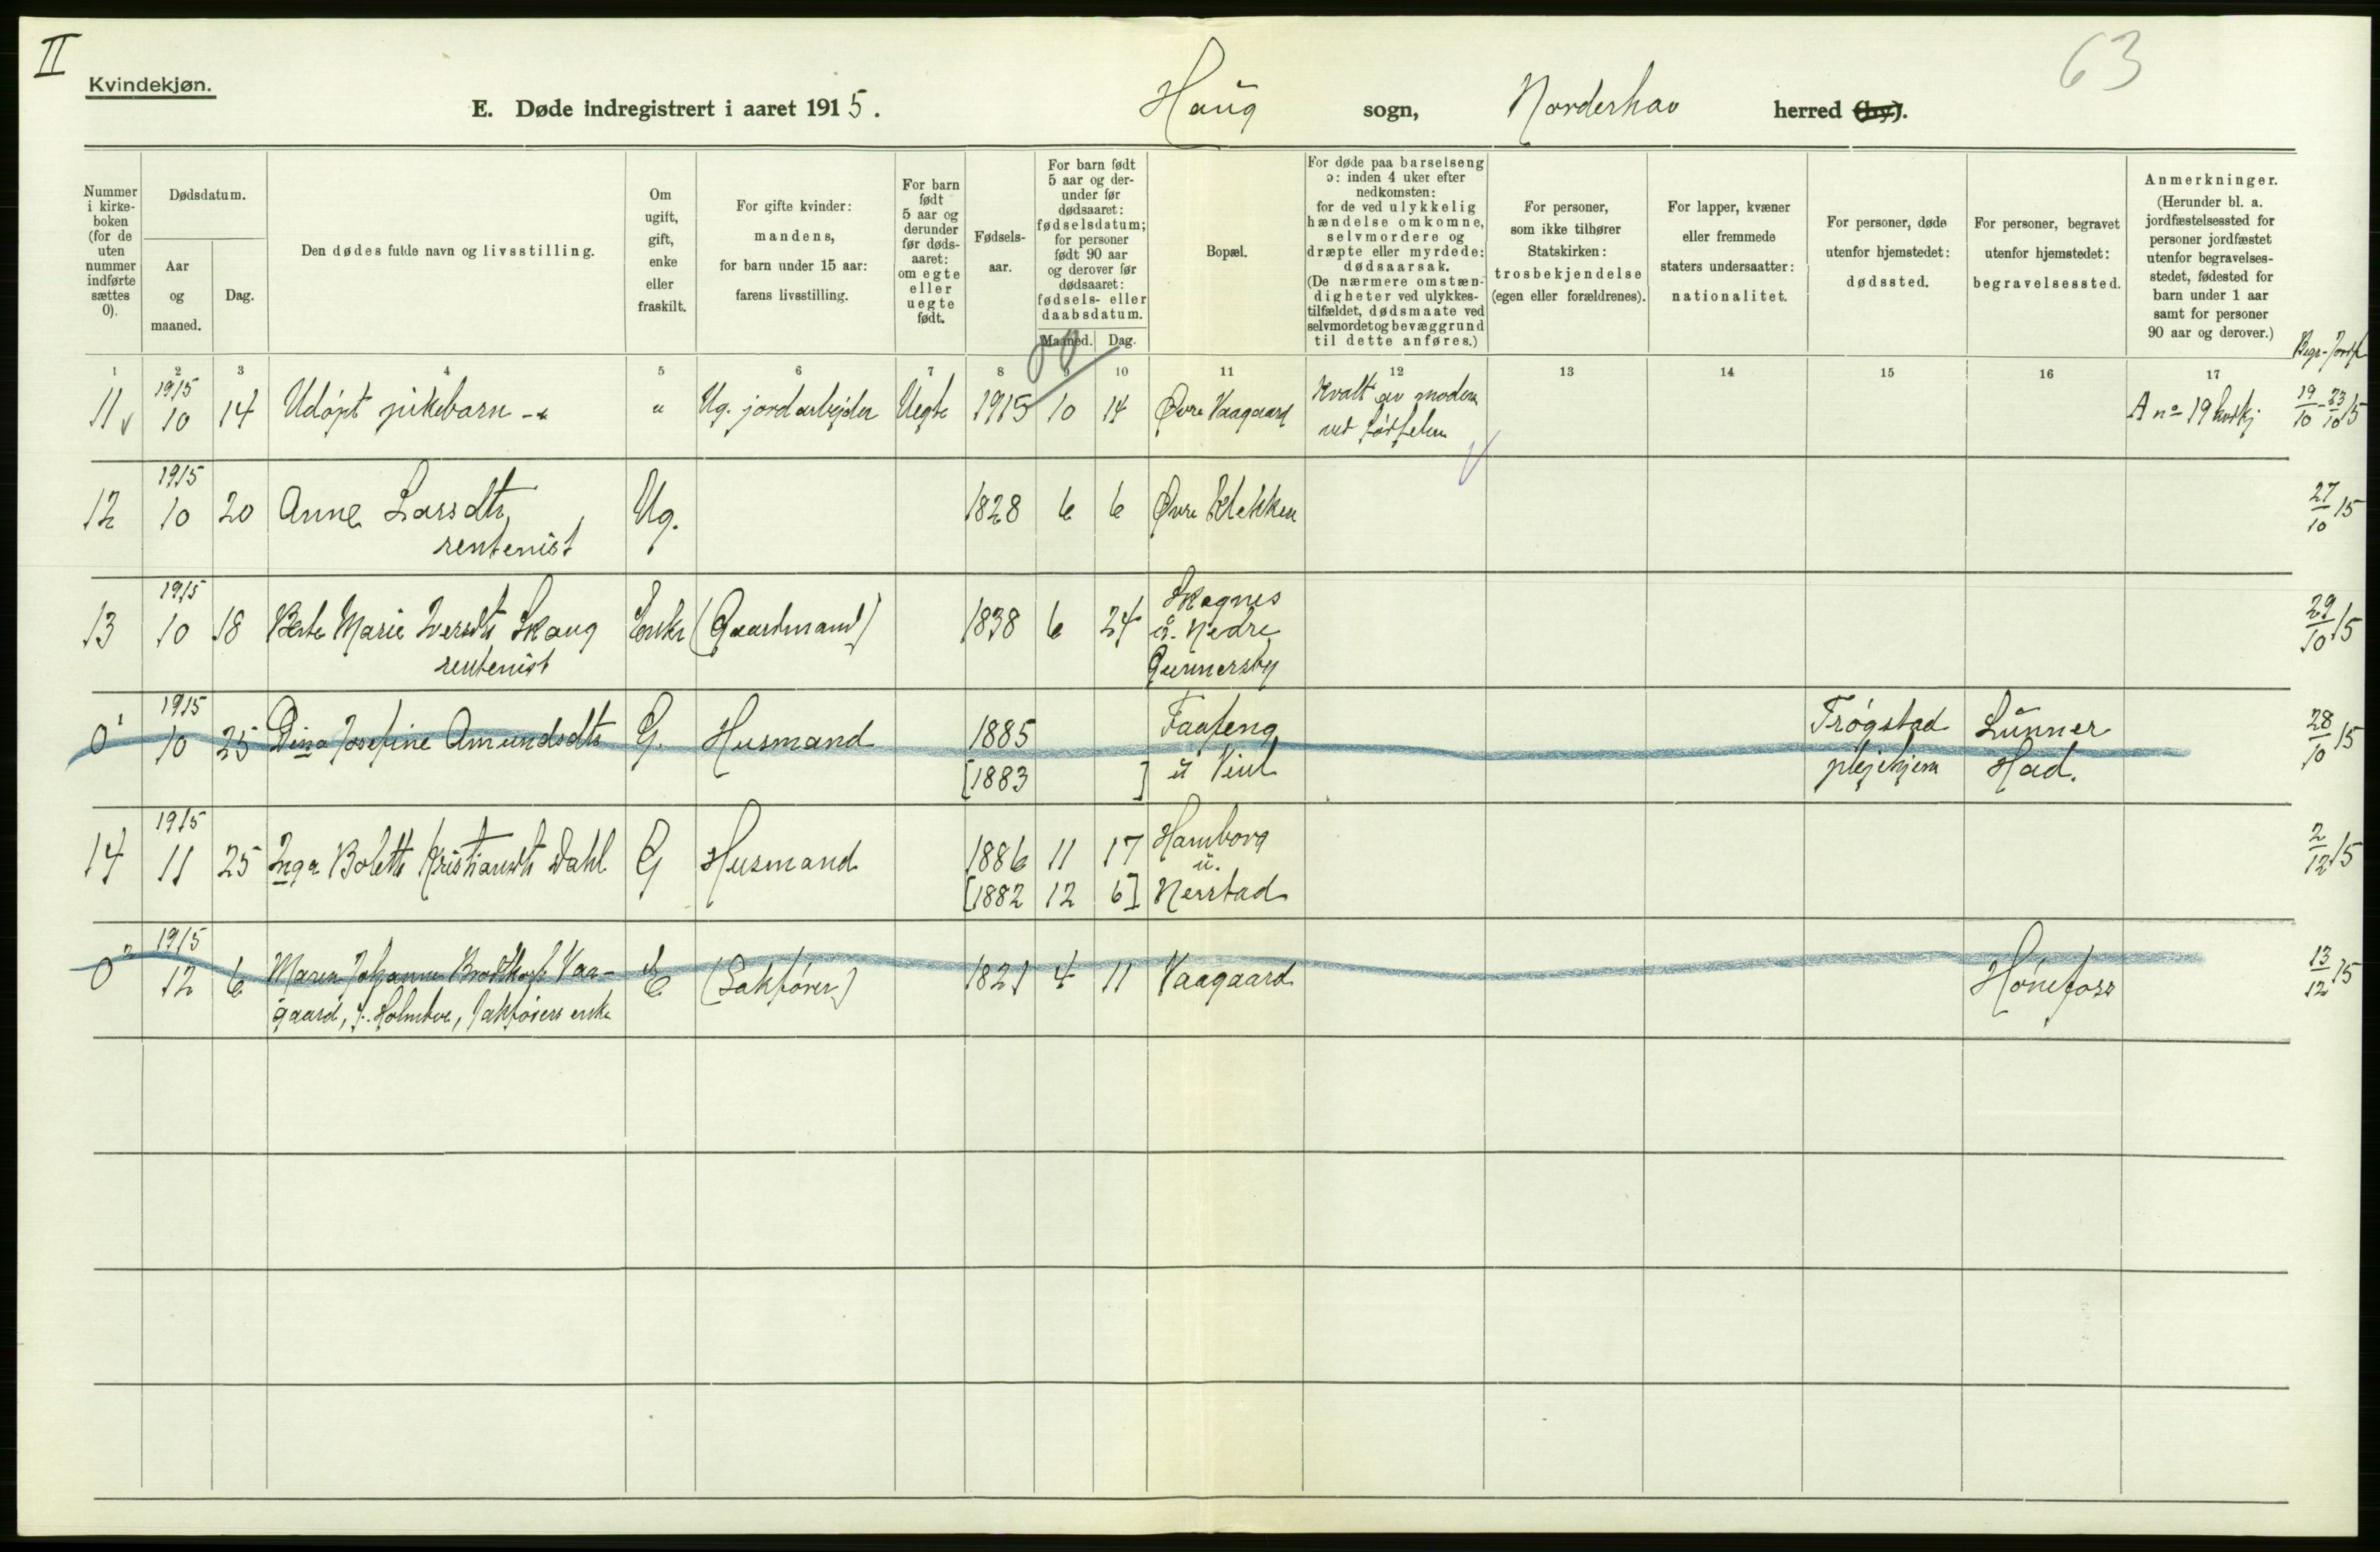 II
63
Kvindekjøn.
E. Døde indregistrert i aaret 1915. Haug sogn, Norderhov herred (by).
Nummer i kirke-boken (for de uten nummer indførte sættes 0).
Dødsdatum.
Aar og maaned.
Dag.
Den dødes fulde navn og livsstilling.
Om ugift, gift, enke eller fraskilt.
For gifte kvinder: mandens, for barn under 15 aar: farens livsstilling.
For barn født 5 aar og derunder før døds-aaret: om egte eller uegte født.
Fødsels-aar.
For barn født 5 aar og der-under før dødsaaret: fødselsdatum; for personer født 90 aar og derover før dødsaaret: fødsels- eller daabsdatum.
Maaned. Dag.
Bopæl.
For døde paa barselseng ɔ: inden 4 uker efter nedkomsten: for de ved ulykkelig hændelse omkomne, selvmordere og dræpte eller myrdede: dødsaarsak. (De nærmere omstæn-digheter ved ulykkes-tilfældet, dødsmaate ved selvmordet og bevæggrund til dette anføres.)
For personer, som ikke tilhører Statskirken: trosbekjendelse (egen eller forældrenes).
For lapper, kvæner eller fremmede staters undersaatter: nationalitet.
For personer, døde utenfor hjemstedet: dødssted.
For personer, begravet utenfor hjemstedet: begravelsessted.
Anmerkninger. (Herunder bl. a. jordfæstelsessted for personer jordfæstet utenfor begravelses-stedet, fødested for barn under 1 aar samt for personer 90 aar og derover.)
Begr.-Jordf
1 2 3 4 5 6 7 8 9 10 11 12 13 14 15 16 17
11 1915 10 14 Udøpt pikebarn -"- " Ug. jordarbejder Uegte 1915 10 14 Øvre Vaagaard Kvalt av moderen ved fødselen A no 19 19/10 - 23/10 15
12 1915 10 20 Anne Larsdtr, rentenist Ug. 1828 6 6 Øvre Klekken 27/10 15
13 1915 10 18 Berte Marie Iversdtr Skaug rentenist Enke (Gaardmand) 1838 6 24 Skagnes u. Nedre Gunnersby 29/10 15
0 1 1915 10 25 Dina Josefine Amundsdtr G. Husmand 1885 [1883 ] Faafeng u Vint Trøgstad plejehjem Lunner Had. 28/10 15
14 1915 11 25 Inga Bolette Kristiansdtr Dahl G Husmand 1886 11 17 [1882 12 6] Hamborg u. Nerstad 2/12 15
0 2 1915 12 6 Maren Johanne Brodtkorb Vaa-gaard, f. Holmboe, sakførers enke E (Sakfører) 1821 4 11 Vaagaard Hønefoss 13/12 15